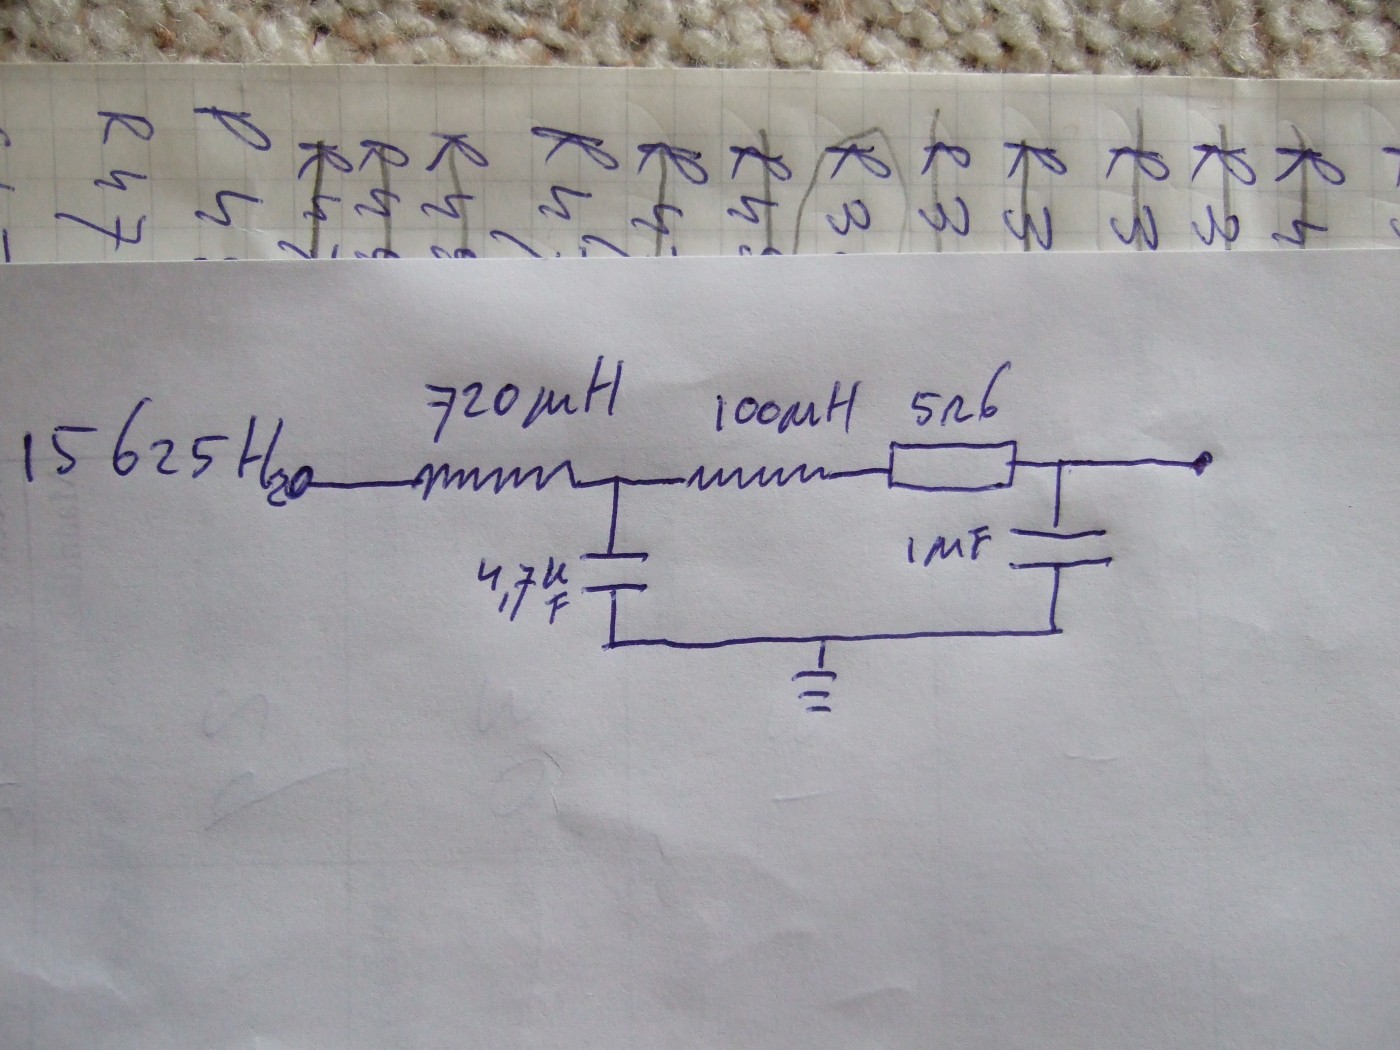 R47
R4
R4
R4
R4
R4
R4
R4
R3
R3
R3
R3
R3
R4
720µH
100µH
5R6
15625Hz
1µF
4,7µ
F